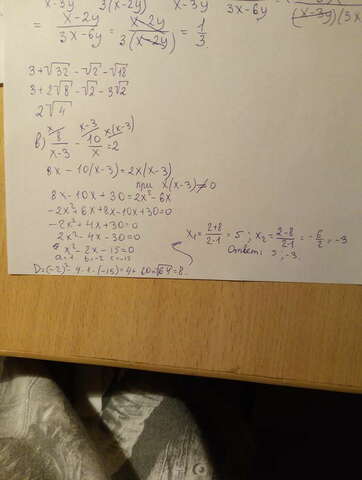 x-3y 3(x-2y) x-3y 3x-6y
= x-2y / 3x-6y = x-2y / 3(x-2y) = 1/3
(x-3y)
3+√32 - √2 - √18
3+2√8 - √2 - 3√2
2√4
x x-3 x(x-3)
в) 8/x-3 - 10/x = 2
8x - 10(x-3) = 2x(x-3)
при x(x-3)≠0
8x - 10x + 30 = 2x² - 6x
-2x² + 6x + 8x - 10x + 30 = 0
-2x² + 4x + 30 = 0
2x² - 4x - 30 = 0
x² - 2x - 15 = 0
a=1 b=-2 c=-15
D=(-2)² - 4·1·(-15) = 4 + 60 = √64 = 8
x₁ = 2+8 / 2·1 = 5 ; x₂ = 2-8 / 2·1 = -6/2 = -3
Ответ: 5 ; -3